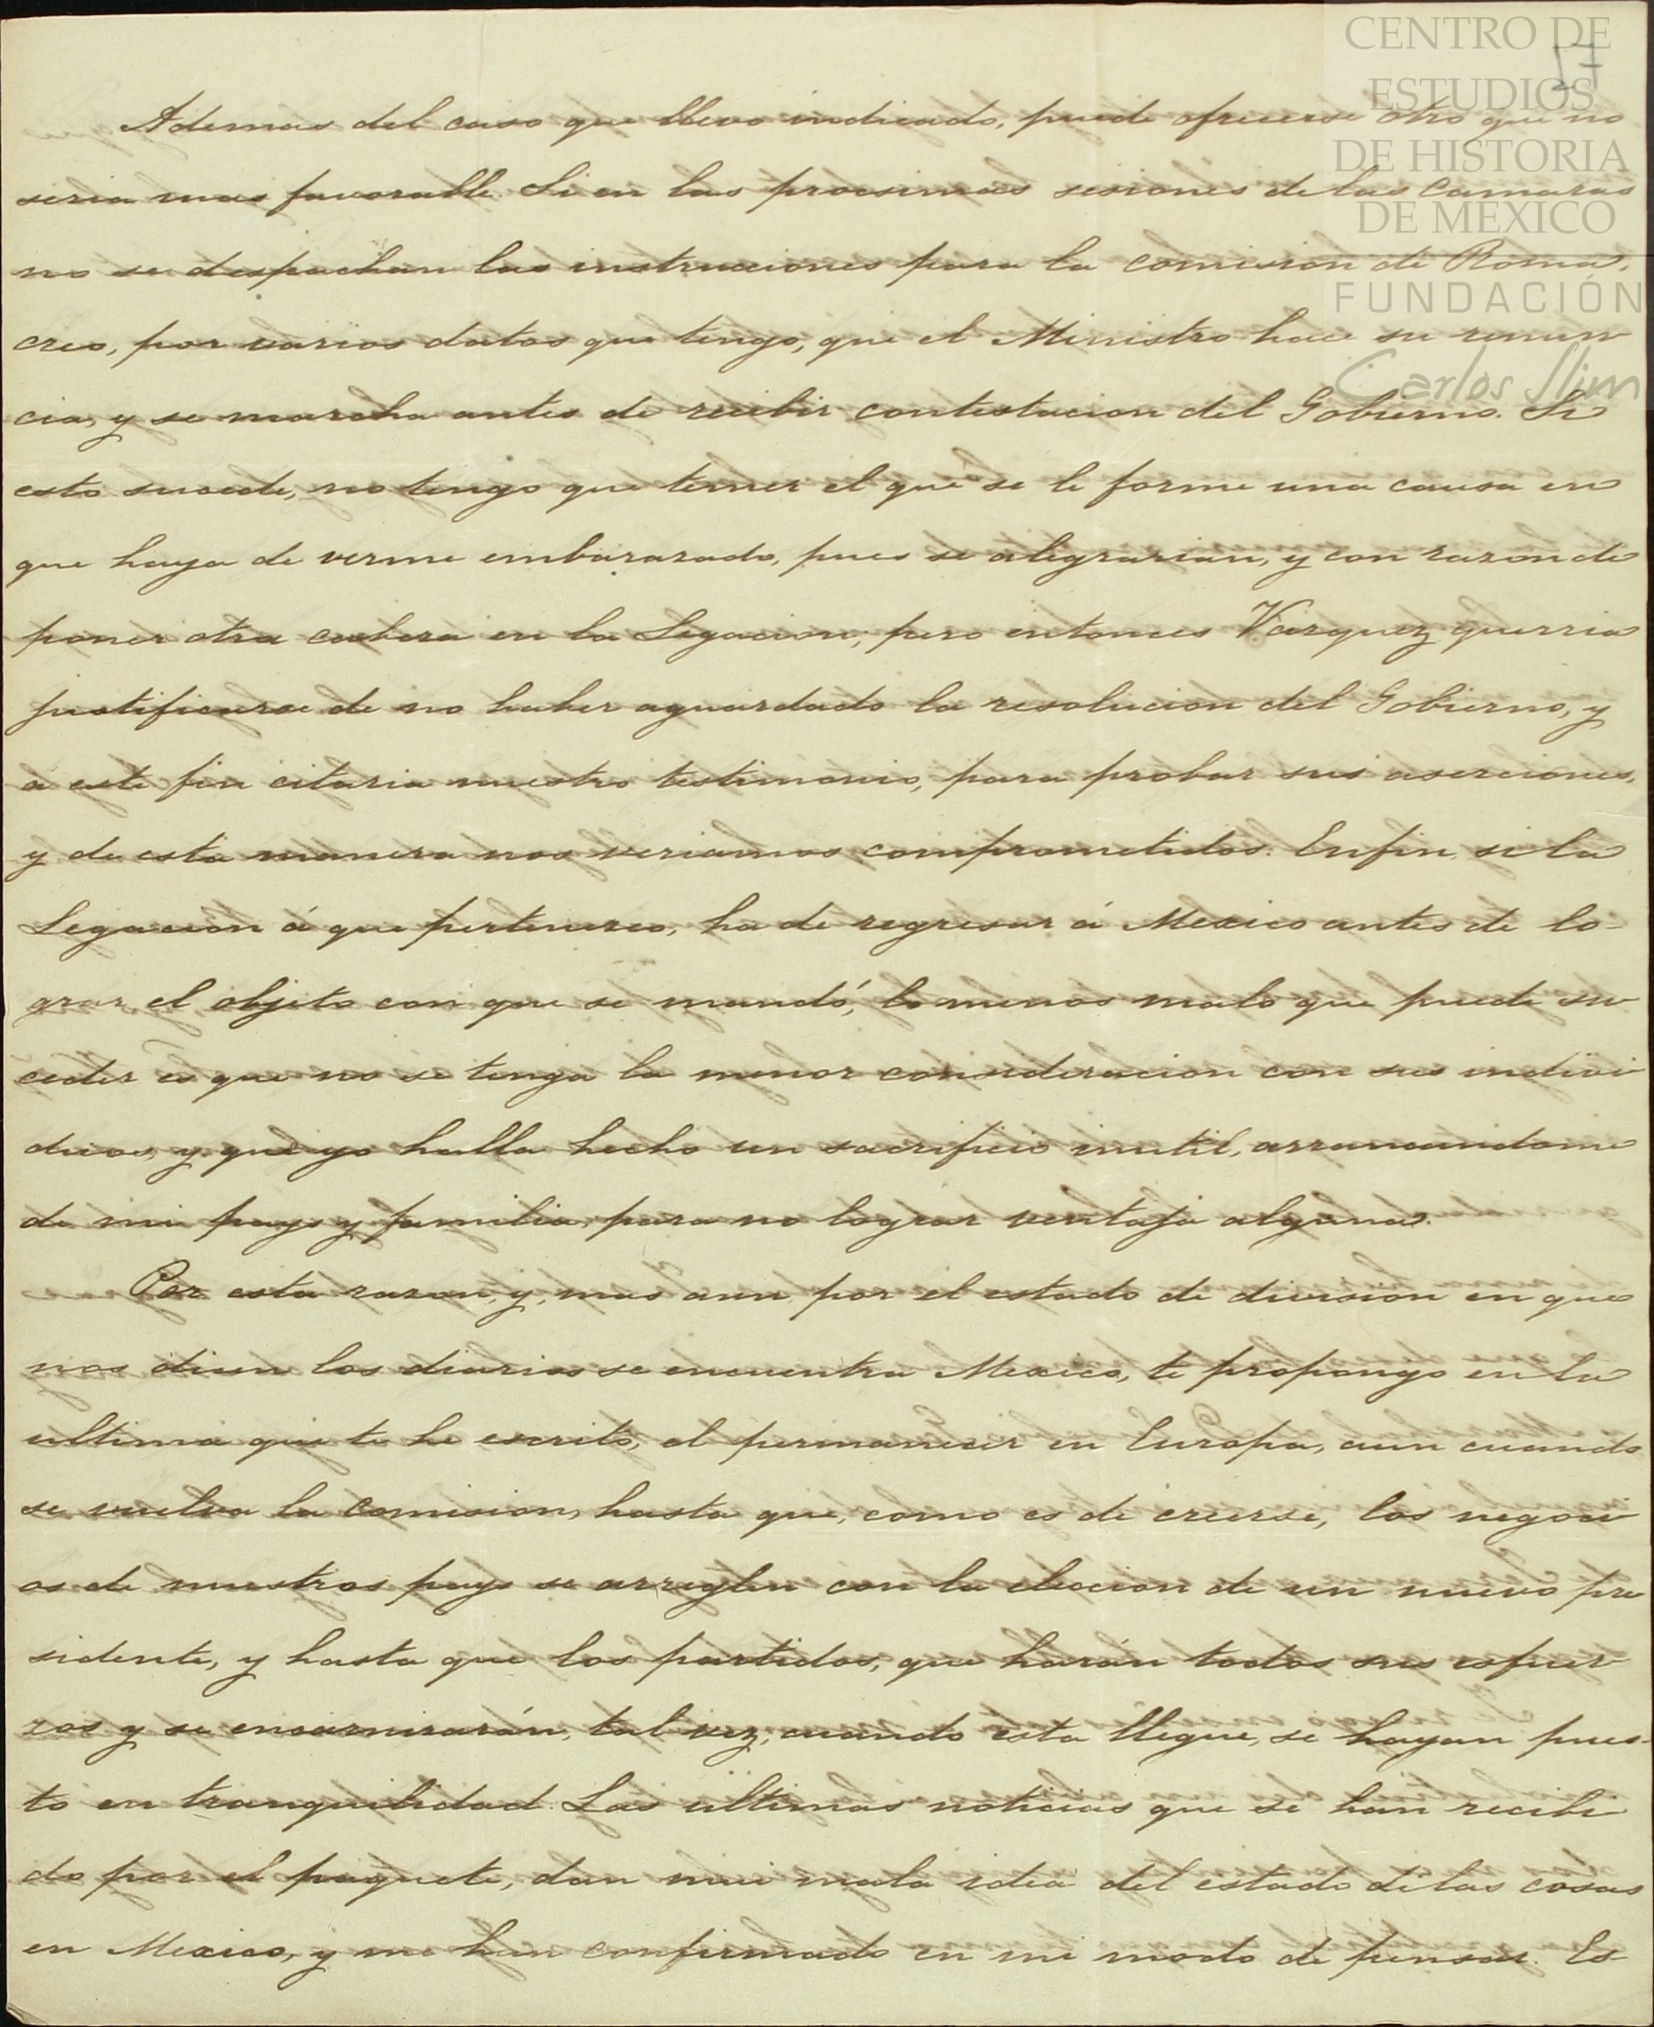 CENTRO DE
ESTUDIOS
DE HISTORIA
DE MEXICO
FUNDACIÓN
Carlos Slim
17
Ademas del caso que llevo indicado, puede ofrecerse otro que no
seria mas favorable. Si en las procsimas sesiones de las Camaras
no se despachan las instrucciones para la comision de Roma,
creo, por varios datos que tengo, que el Ministro hace su renun
cia, y se marcha antes de recibir contestacion del Gobierno. Si
esto sucede, no tengo que temer el que se le forme una causa en
que haya de verme embarazado, pues se alegrarian, y con razon de
poner otra cabeza en la Legacion; pero entonces Vazquez querria
justificarse de no haber aguardado la resolucion del Gobierno, y
a este fin citaria nuestro testimonio, para probar sus aserciones,
y de esta manera nos veriamos comprometidos. En fin si la
Legacion á que pertenezco, ha de regresar á Mexico antes de lo-
grar el objeto con que se mandó, lo menos malo que puede su
ceder es que no se tenga la menor consideracion con sus indivi
duos, y que yo halla hecho un sacrificio inutil, arrancandome
de mi pays y familia, para no lograr ventaja alguna.
Por esta razon, y, mas aun, por el estado de division en que
nos dicen los diarios se encuentra Mexico, te propongo en la
ultima que te he escrito, el permanecer en Europa, aun cuando
se vuelva la comision, hasta que, como es de creerse, los negoci
os de nuestros pays se arreglen con la eleccion de un nuevo pre
sidente, y hasta que los partidos, que harán todos sus esfuer
zos y se encarnizarán, tal vez, cuando esta llegue, se hayan pues-
to en tranquilidad. Las ultimas noticias que se han recibi
do por el paquete, dan mui mala idea del estado de las cosas
en Mexico, y me han confirmado en mi modo de pensar. Es-